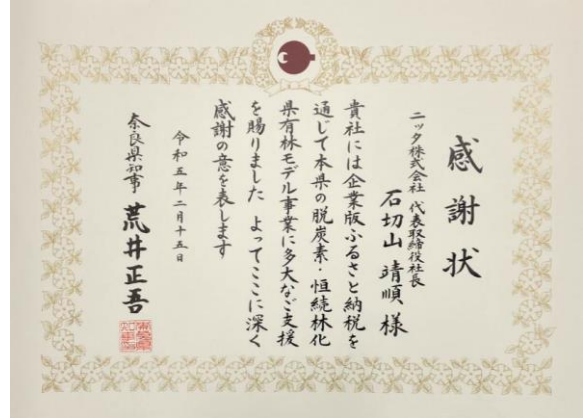 感謝状
ニッタ株式会社 代表取締役社長
石切山 靖順 様
貴社には企業版ふるさと納税を
通じて本県の脱炭素・恒続林化
県有林モデル事業に多大なご支援
を賜りました よってここに深く
感謝の意を表します
令和五年二月十五日
奈良県知事 荒井正吾